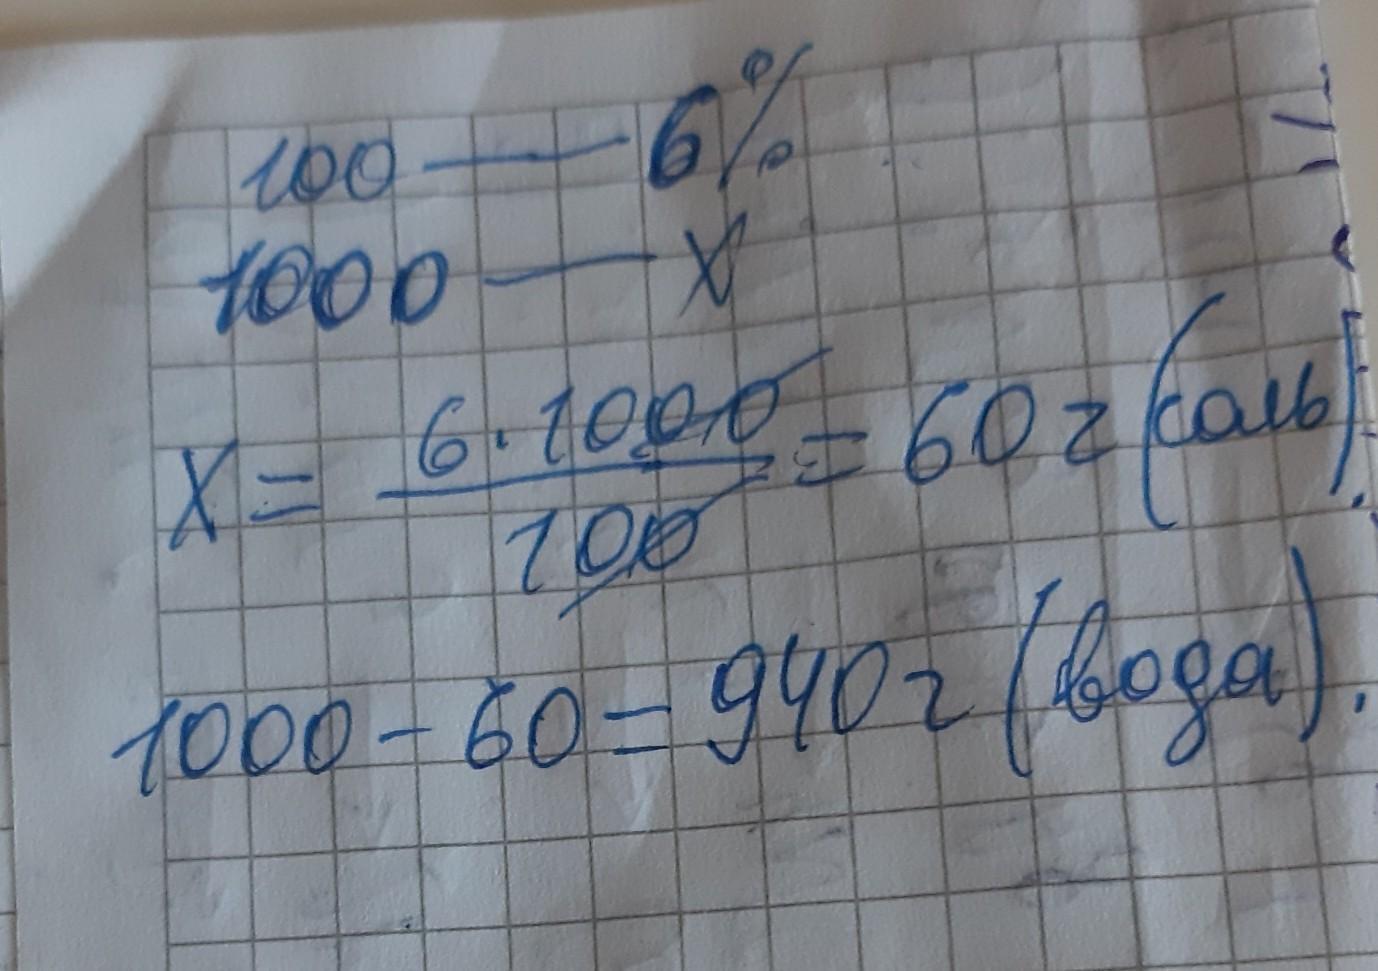 100 — 6%
1000 — X
X = 6·1000 / 100 = 60 г (соль).
1000 - 60 = 940 г (вода).